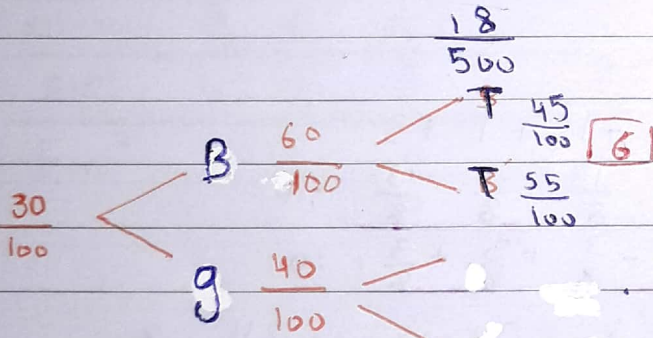 18
500
T 45
100
6
B 60
100
T 55
100
30
100
g 40
100